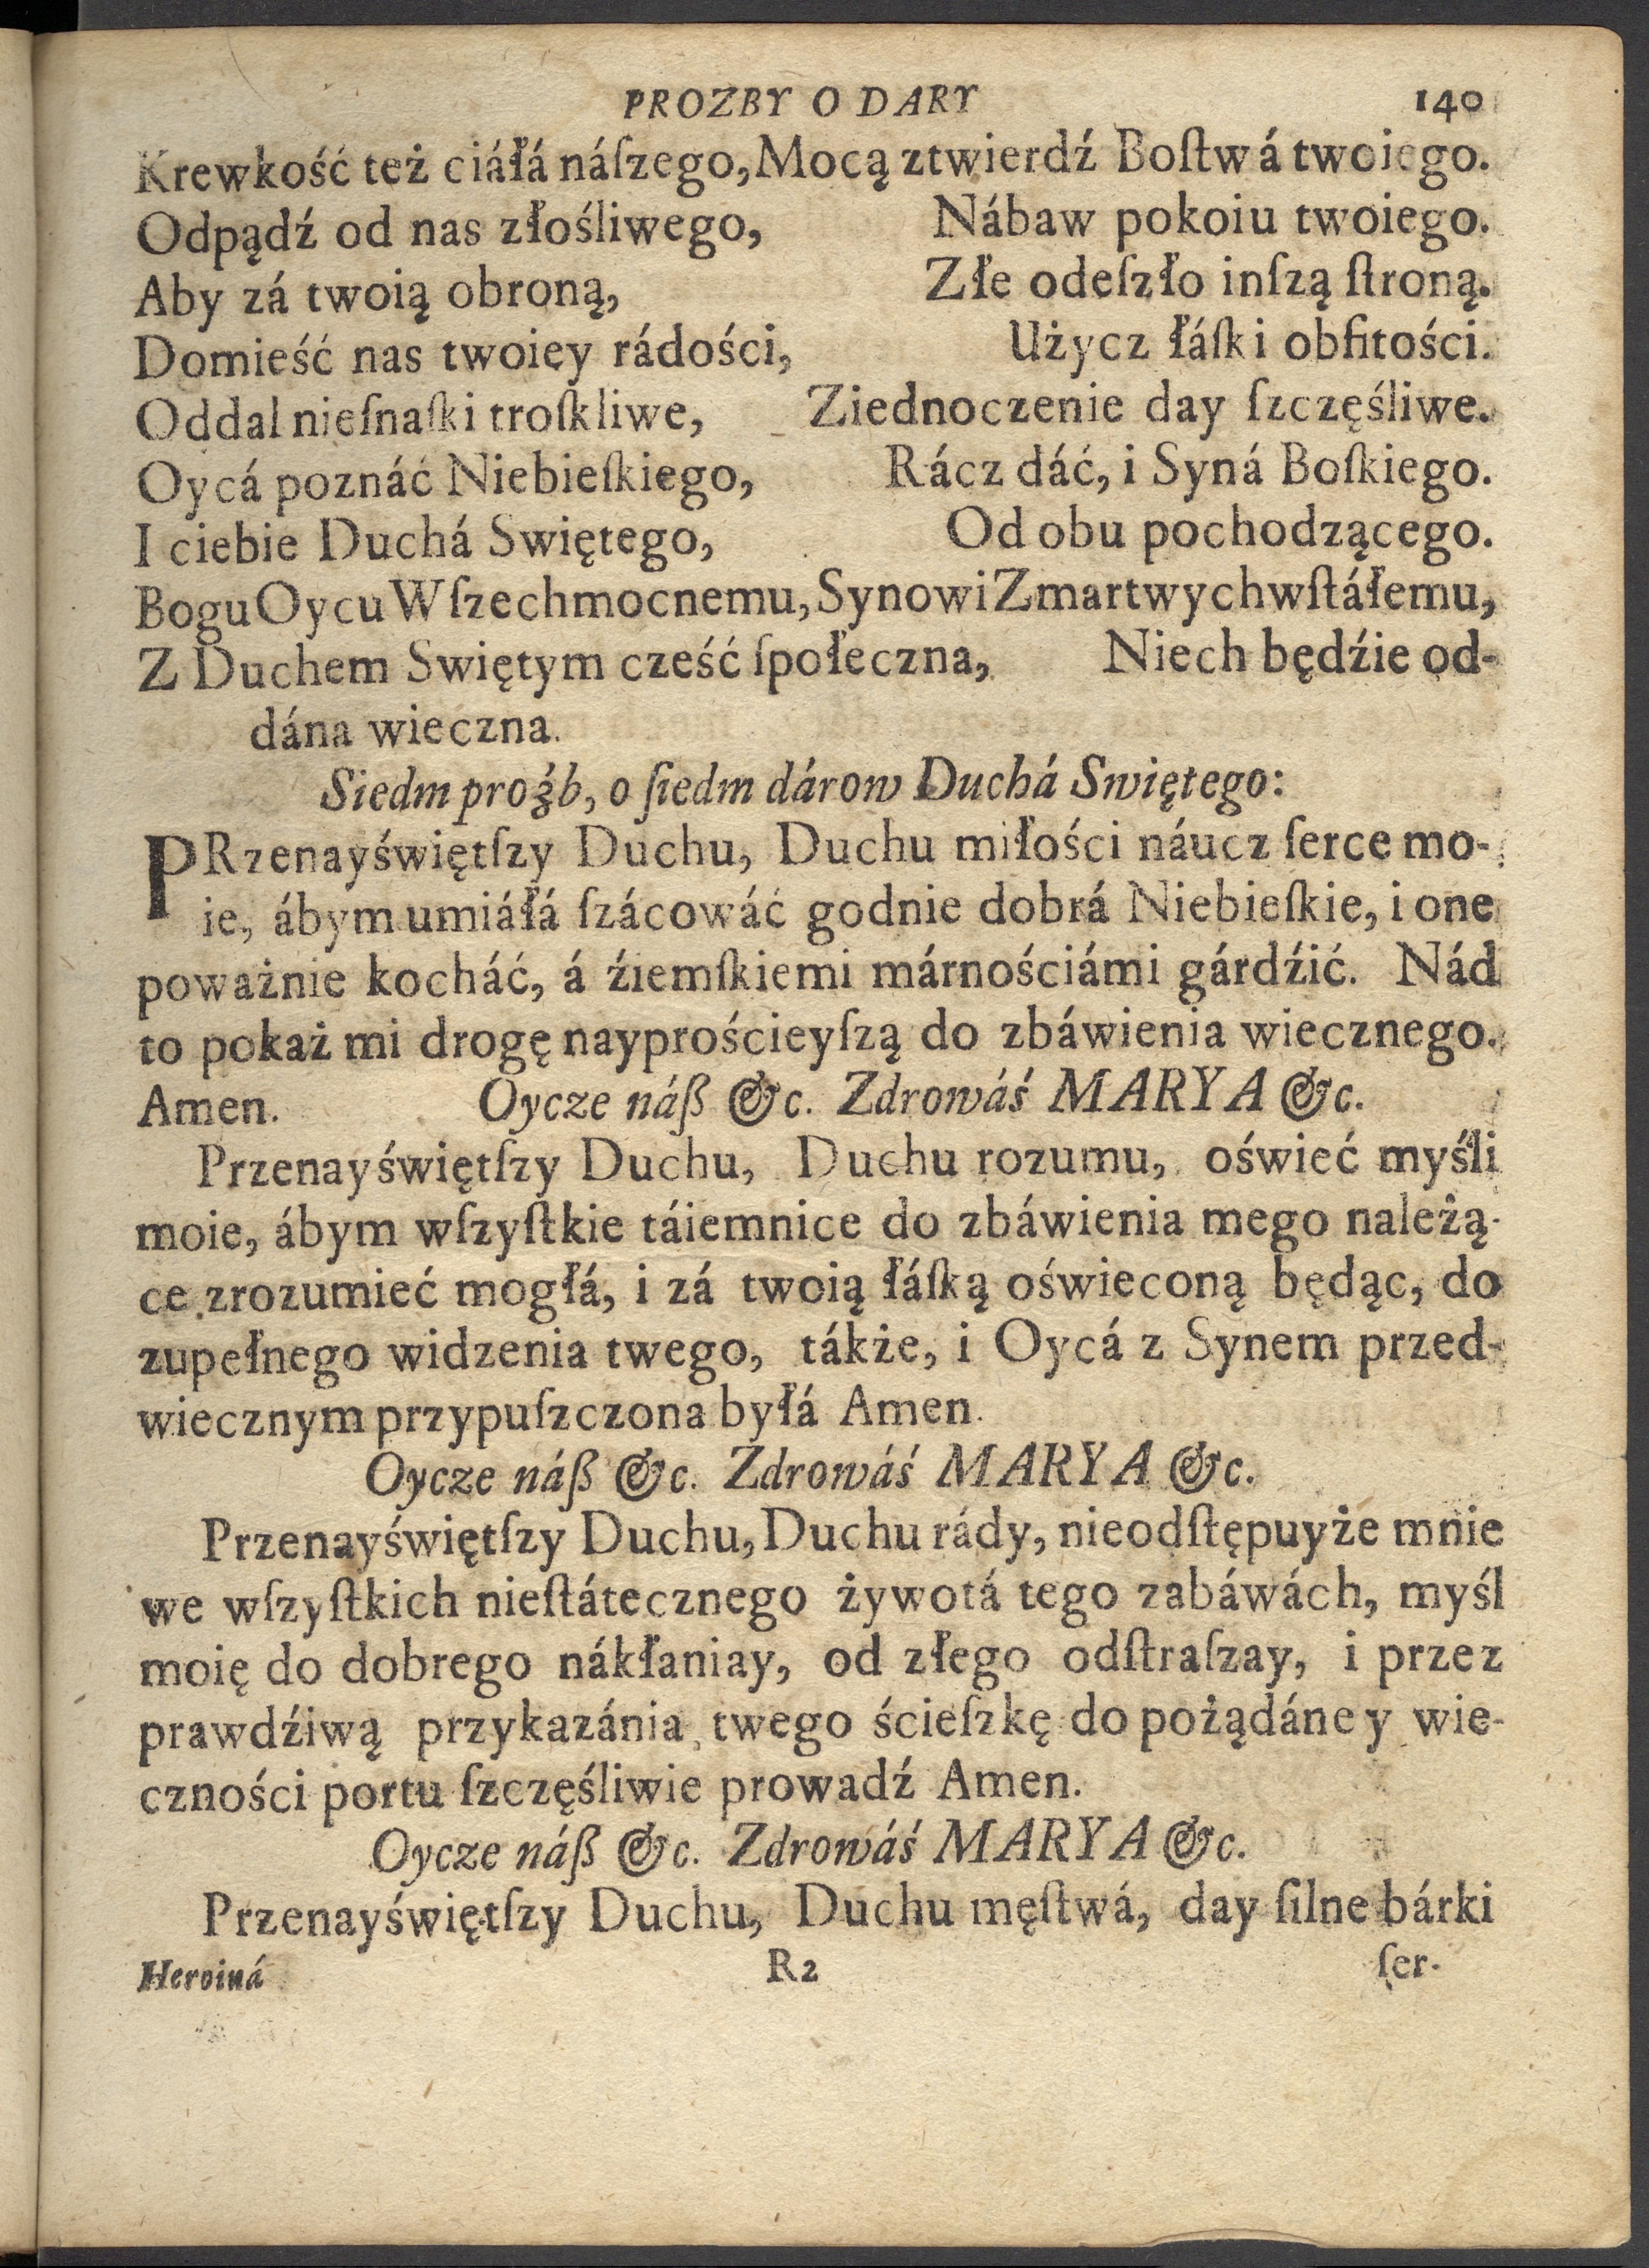 PROZBY O DARY 140
Krewkość też ciáłá náſzego, Mocą ztwierdź Boſtwá twoiego.
Odpądź od nas złośliwego, Nábaw pokoiu twoiego.
Aby zá twoią obroną, Złe odeſzło inſzą ſtroną.
Domieść nas twoiey rádości, Użycz łáſki obfitości.
Oddal nieſnaſki troſkliwe, Ziednoczenie day ſzczęśliwe.
Oycá poznáć Niebieſkiego, Rácz dáć, i Syná Boſkiego.
I ciebie Duchá Swiętego, Od obu pochodzącego.
Bogu Oycu Wſzechmocnemu, Synowi Zmartwychwſtáłemu,
Z Duchem Swiętym cześć ſpołeczna, Niech będźie od-
dána wieczna.
Siedm proźb, o ſiedm dárow Duchá Swiętego:
PRzenayświętſzy Duchu, Duchu miłości náucz ſerce mo-
ie, ábym umiáłá ſzácowáć godnie dobrá Niebieſkie, i one
poważnie kocháć, á źiemſkiemi márnościámi gárdźić. Nád
to pokaż mi drogę nayprościeyſzą do zbáwienia wiecznego.
Amen. Oycze náß &c. Zdrowáś MARYA &c.
Przenayświętſzy Duchu, Duchu rozumu, oświeć myśli
moie, ábym wſzyſtkie táiemnice do zbáwienia mego należą-
ce zrozumieć mogłá, i zá twoią łáſką oświeconą będąc, do
zupełnego widzenia twego, tákże, i Oycá z Synem przed-
wiecznym przypuſzczona byłá Amen.
Oycze náß &c. Zdrowáś MARYA &c.
Przenayświętſzy Duchu, Duchu rády, nieodſtępuyże mnie
we wſzyſtkich nieſtátecznego żywotá tego zabáwách, myśl
moię do dobrego nákłaniay, od złego odſtraſzay, i przez
prawdźiwą przykazánia twego ścieſzkę do pożądáney wie-
czności portu ſzczęśliwie prowadź Amen.
Oycze náß &c. Zdrowáś MARYA &c.
Przenayświętſzy Duchu, Duchu męſtwá, day ſilne bárki
Heroiná R2 ſer-